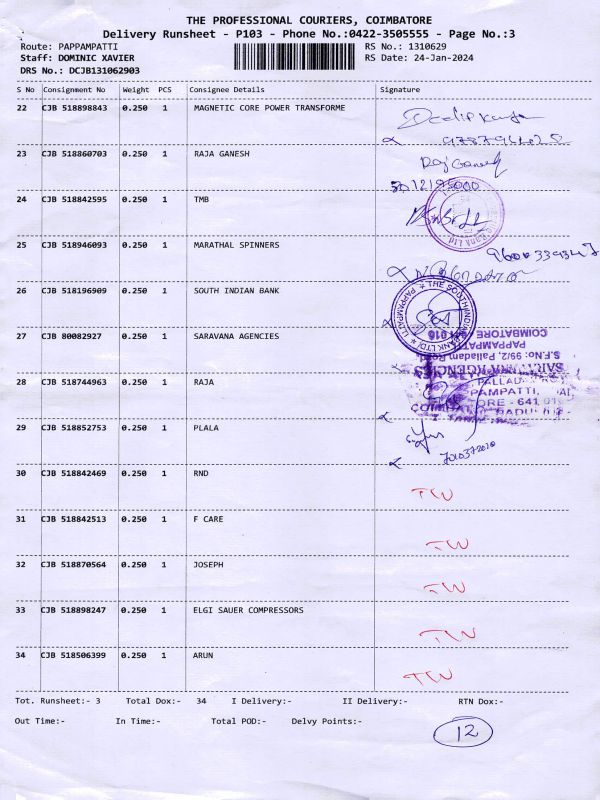 THE PROFESSIONAL COURIERS, COIMBATORE
Delivery Runsheet - P103 - Phone No.:0422-3505555 - Page No.:3
Route: PAPPAMPATTI RS No.: 1310629
Staff: DOMINIC XAVIER RS Date: 24-Jan-2024
DRS No.: DCJB131062903
S No Consignment No Weight PCS Consignee Details Signature
22 CJB 518898843 0.250 1 MAGNETIC CORE POWER TRANSFORME
23 CJB 518860703 0.250 1 RAJA GANESH Raj Ganesh
24 CJB 518842595 0.250 1 TMB
25 CJB 518946093 0.250 1 MARATHAL SPINNERS
26 CJB 518196909 0.250 1 SOUTH INDIAN BANK
THE SOUTH INDIAN BANK LTD PAPPAMPATTI
27 CJB 80082927 0.250 1 SARAVANA AGENCIES
SARAVANA AGENCIES
S.F.NO: 99/2, Palladam Road,
PAPPAMPATTI
COIMBATORE
28 CJB 518744963 0.250 1 RAJA
29 CJB 518852753 0.250 1 PLALA
7010372010
30 CJB 518842469 0.250 1 RND TW
31 CJB 518842513 0.250 1 F CARE TW
32 CJB 518870564 0.250 1 JOSEPH TW
33 CJB 518898247 0.250 1 ELGI SAUER COMPRESSORS TW
34 CJB 518506399 0.250 1 ARUN TW
Tot. Runsheet:- 3 Total Dox:- 34 I Delivery:- II Delivery:- RTN Dox:-
Out Time:- In Time:- Total POD:- Delvy Points:-
12